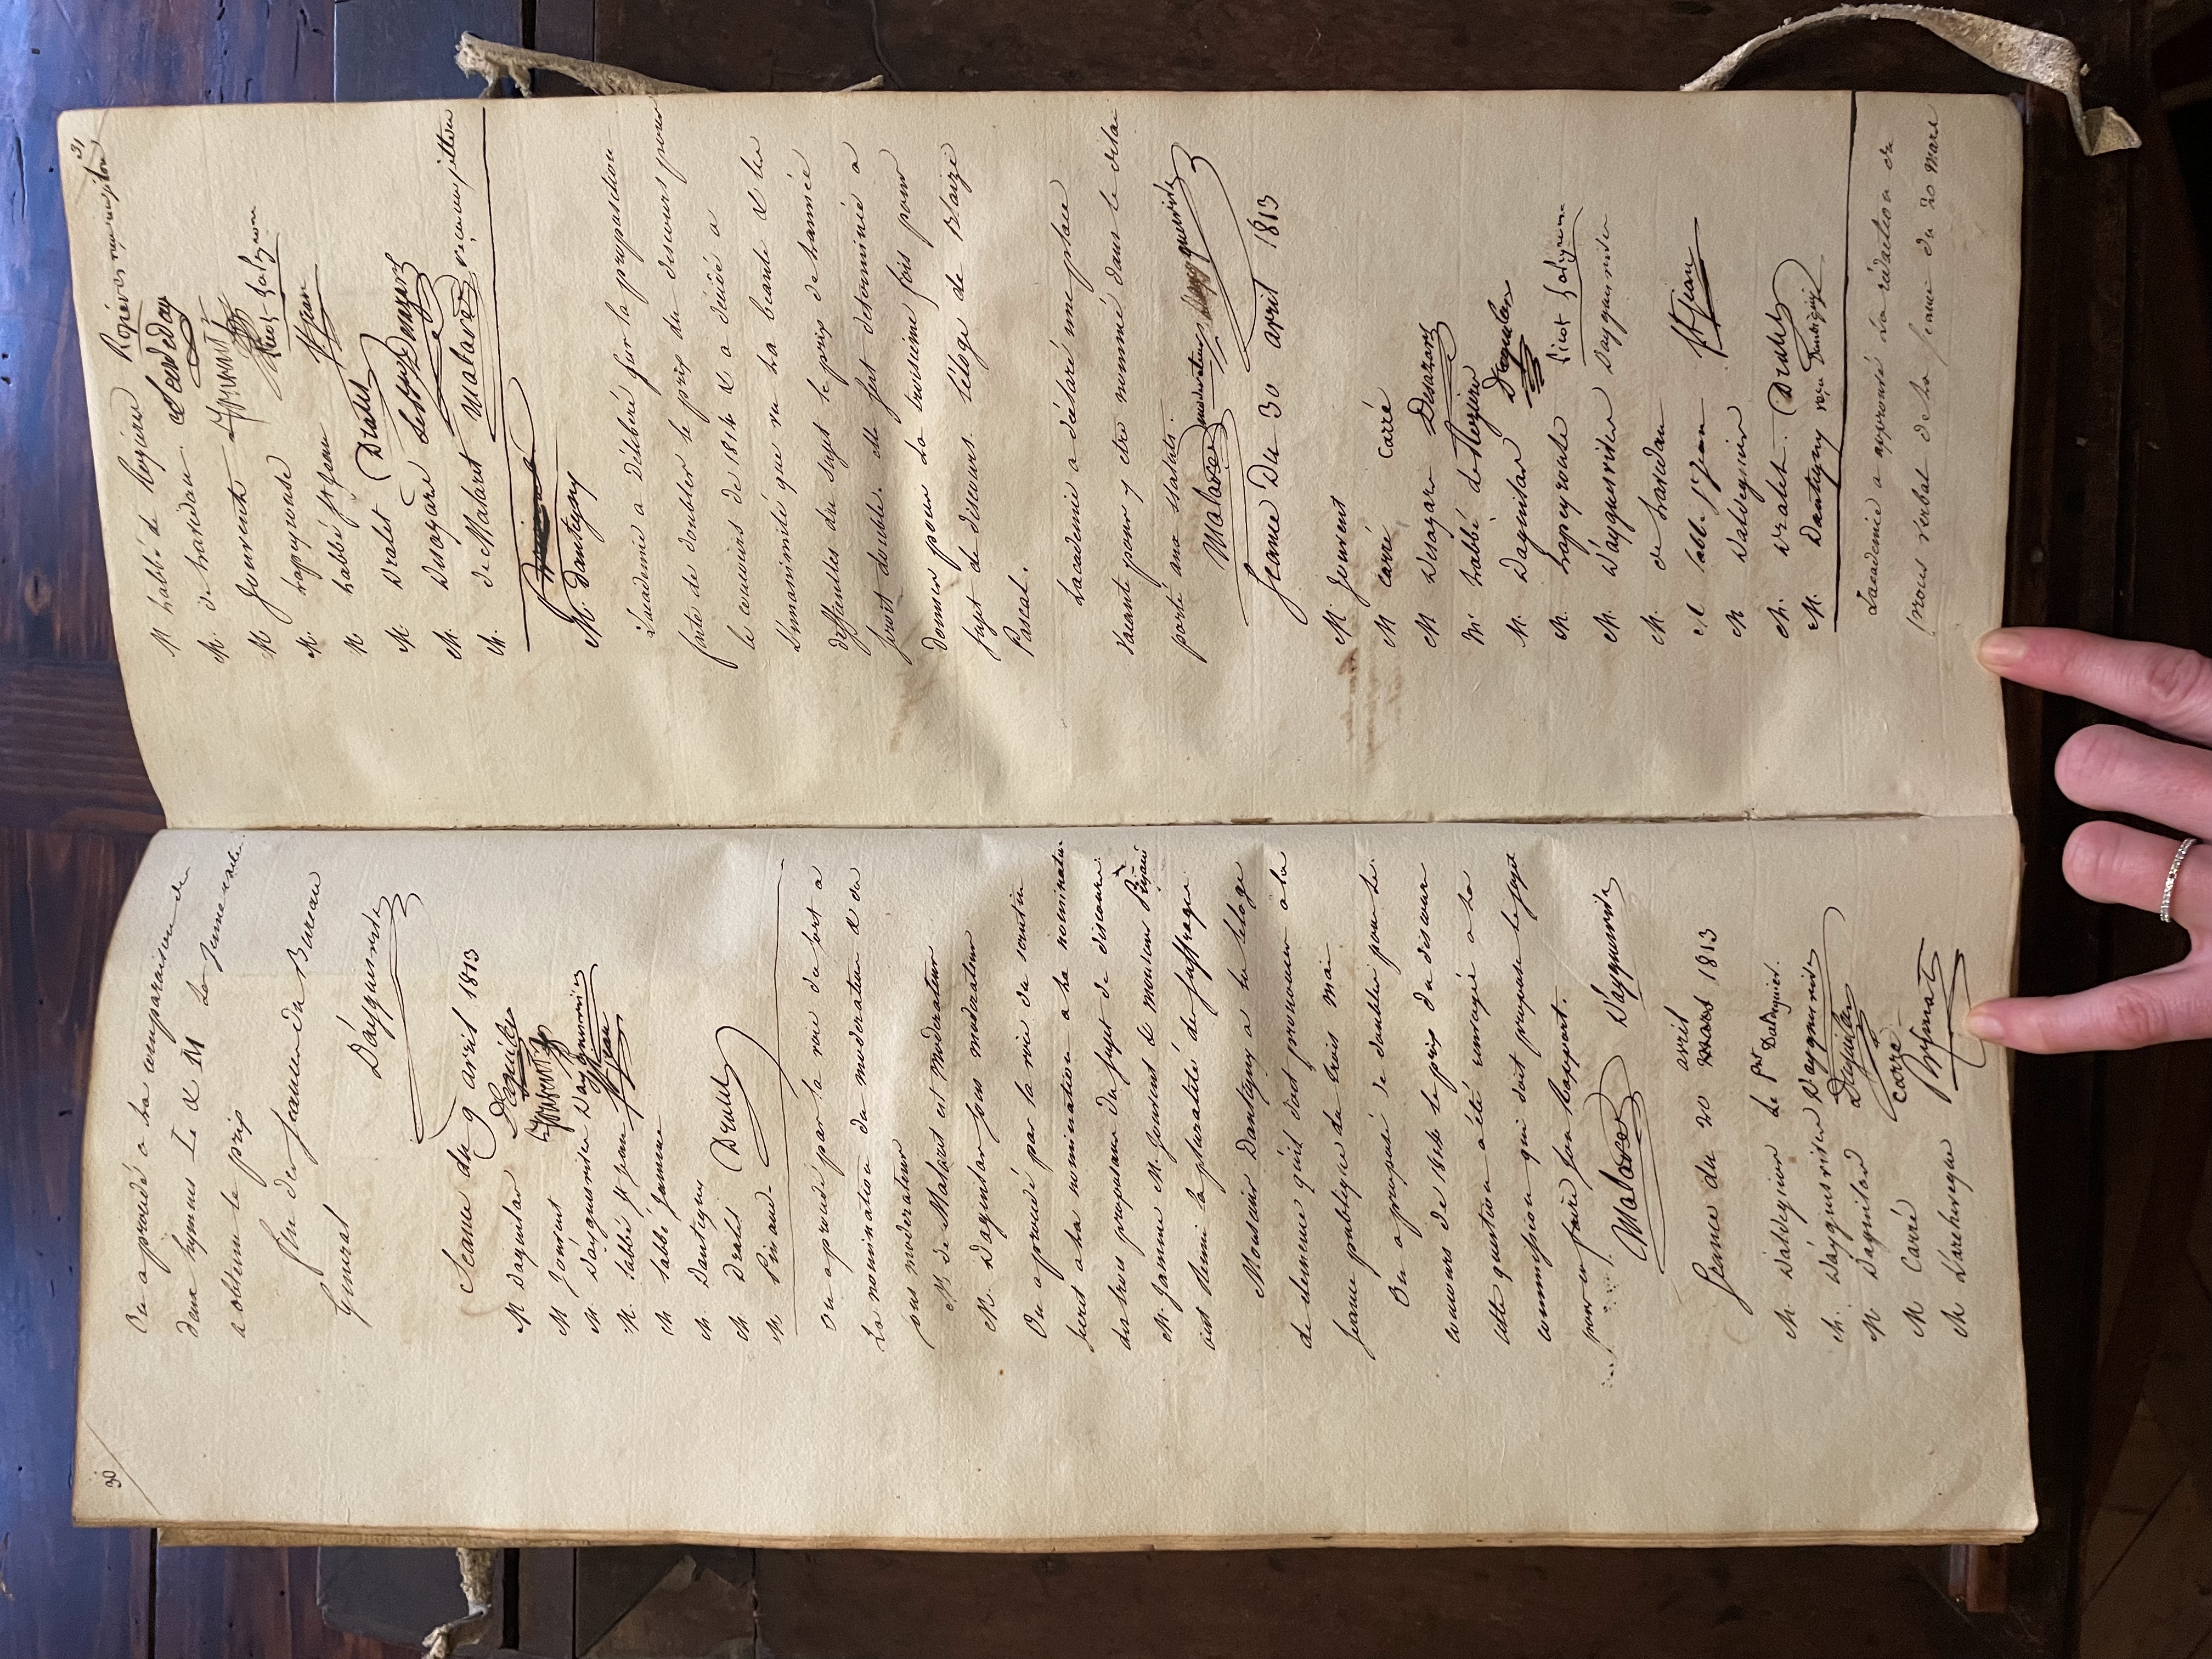 30
On a procédé a la comparaison des
deux hymnes Le & M La Jeune
a obtenu le prix
fin des seances du Bureau
General
D'ayguesvives
Seance du 9 avril 1813
M Daguilar Daguilar
M Jouvent Jouvent
M D'ayguesvives D'ayguesvives
M. l'abbé St jean St jean
M l'abbé Jamme
M. Dantigny
M. Dralet Dralet
M. Pinaud
On a procédé par la voie du sort a
la nomination du moderateur & du
sous moderateur
M de Malaret est moderateur
M. Daguilar sous moderateur
On a procédé par la voie du scrutin
secret a la nomination a la nomination
des trois proposans du sujet de discours.
M. Jamme M. Jouvent & monsieur
ont reuni la pluralité des suffrages.
Monsieur Dantigny a lu l'eloge
de clemence qu'il doit prononcer a la
seance publique du trois mai
On a proposé de doubler pour le
concours de 1814 le prix du discours
cette question a été renvoyée a la
commission qui doit proposer le sujet
pour en faire son rapport.
Malaret D'ayguesvives
avril
Seance du 20 mars 1813
M. D'aldeguier de
M. D'ayguesvives D'ayguesvives
M Daguilard Daguilar
M Carré carré
M L'archeveque
31
M l'abbé de Rozieres Rozieres
M. de Lavedan Lavedan
M Jouvent Jouvent
M. Lapeyrouse Picot Lapeyrouse
M l'abbé St jean St jean
M. Dralet Dralet
M. Desazars Desazars
M. de Malaret Malaret
M. Dantigny
L'academie a déliberé sur la proposition
faite de doubler le prix du discours pour
le concours de 1814 & a decidé a
l'unanimité que vu la beauté & les
difficultes du sujet le prix de l'année
seroit double. elle s'est determinée a
donner pour la troisieme fois pour
sujet de discours. l'éloge de Blaize
Pascal.
L'academie a déclaré une place
vacante pour y etre nommé dans le delai
porté aux statuts.
Malaret moderateur
Seance Du 30 avril 1813
M. Jouvent
M carré carré
M Desazars Desazars
M. l'abbé de Rozieres
M. Daguilar Daguilar
M. Lapeyrouse Picot Lapeyrouse
M. D'ayguesvives D'ayguesvives
M. de Lavedan
M l'abbé St jean St jean
M D'aldeguier
M. Dralet. Dralet
M. Dantigny
L'academie a approuvé la rédaction du
procés verbal de la seance du 20 mars